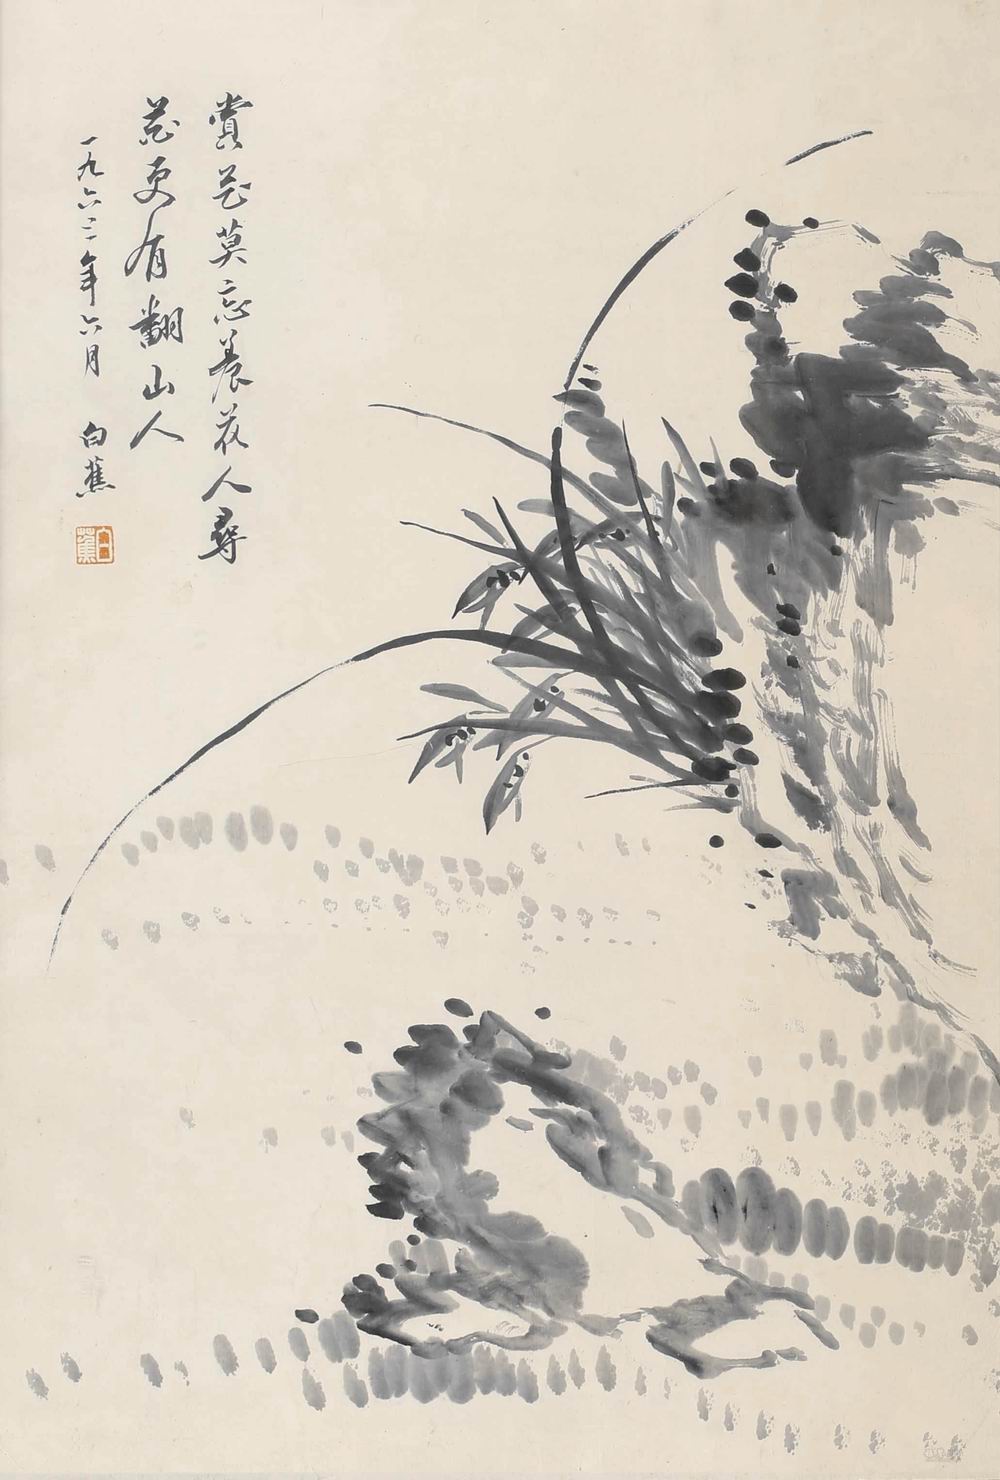 賞花莫忘養花人尋
花更有翻山人
一九六三年六月 白蕉
白蕉